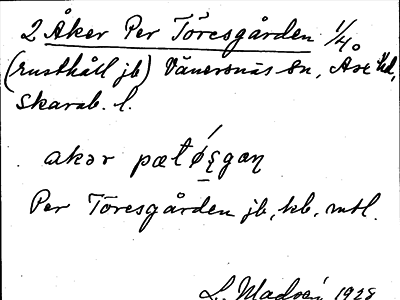 2 Åker Per Töresgården 1/4
(rusthåll jb) Vänersnäs sn, Åse hd,
Skarab. l.
akər
Per Töresgården jb, kb, mtl.
L. Madsén 1928